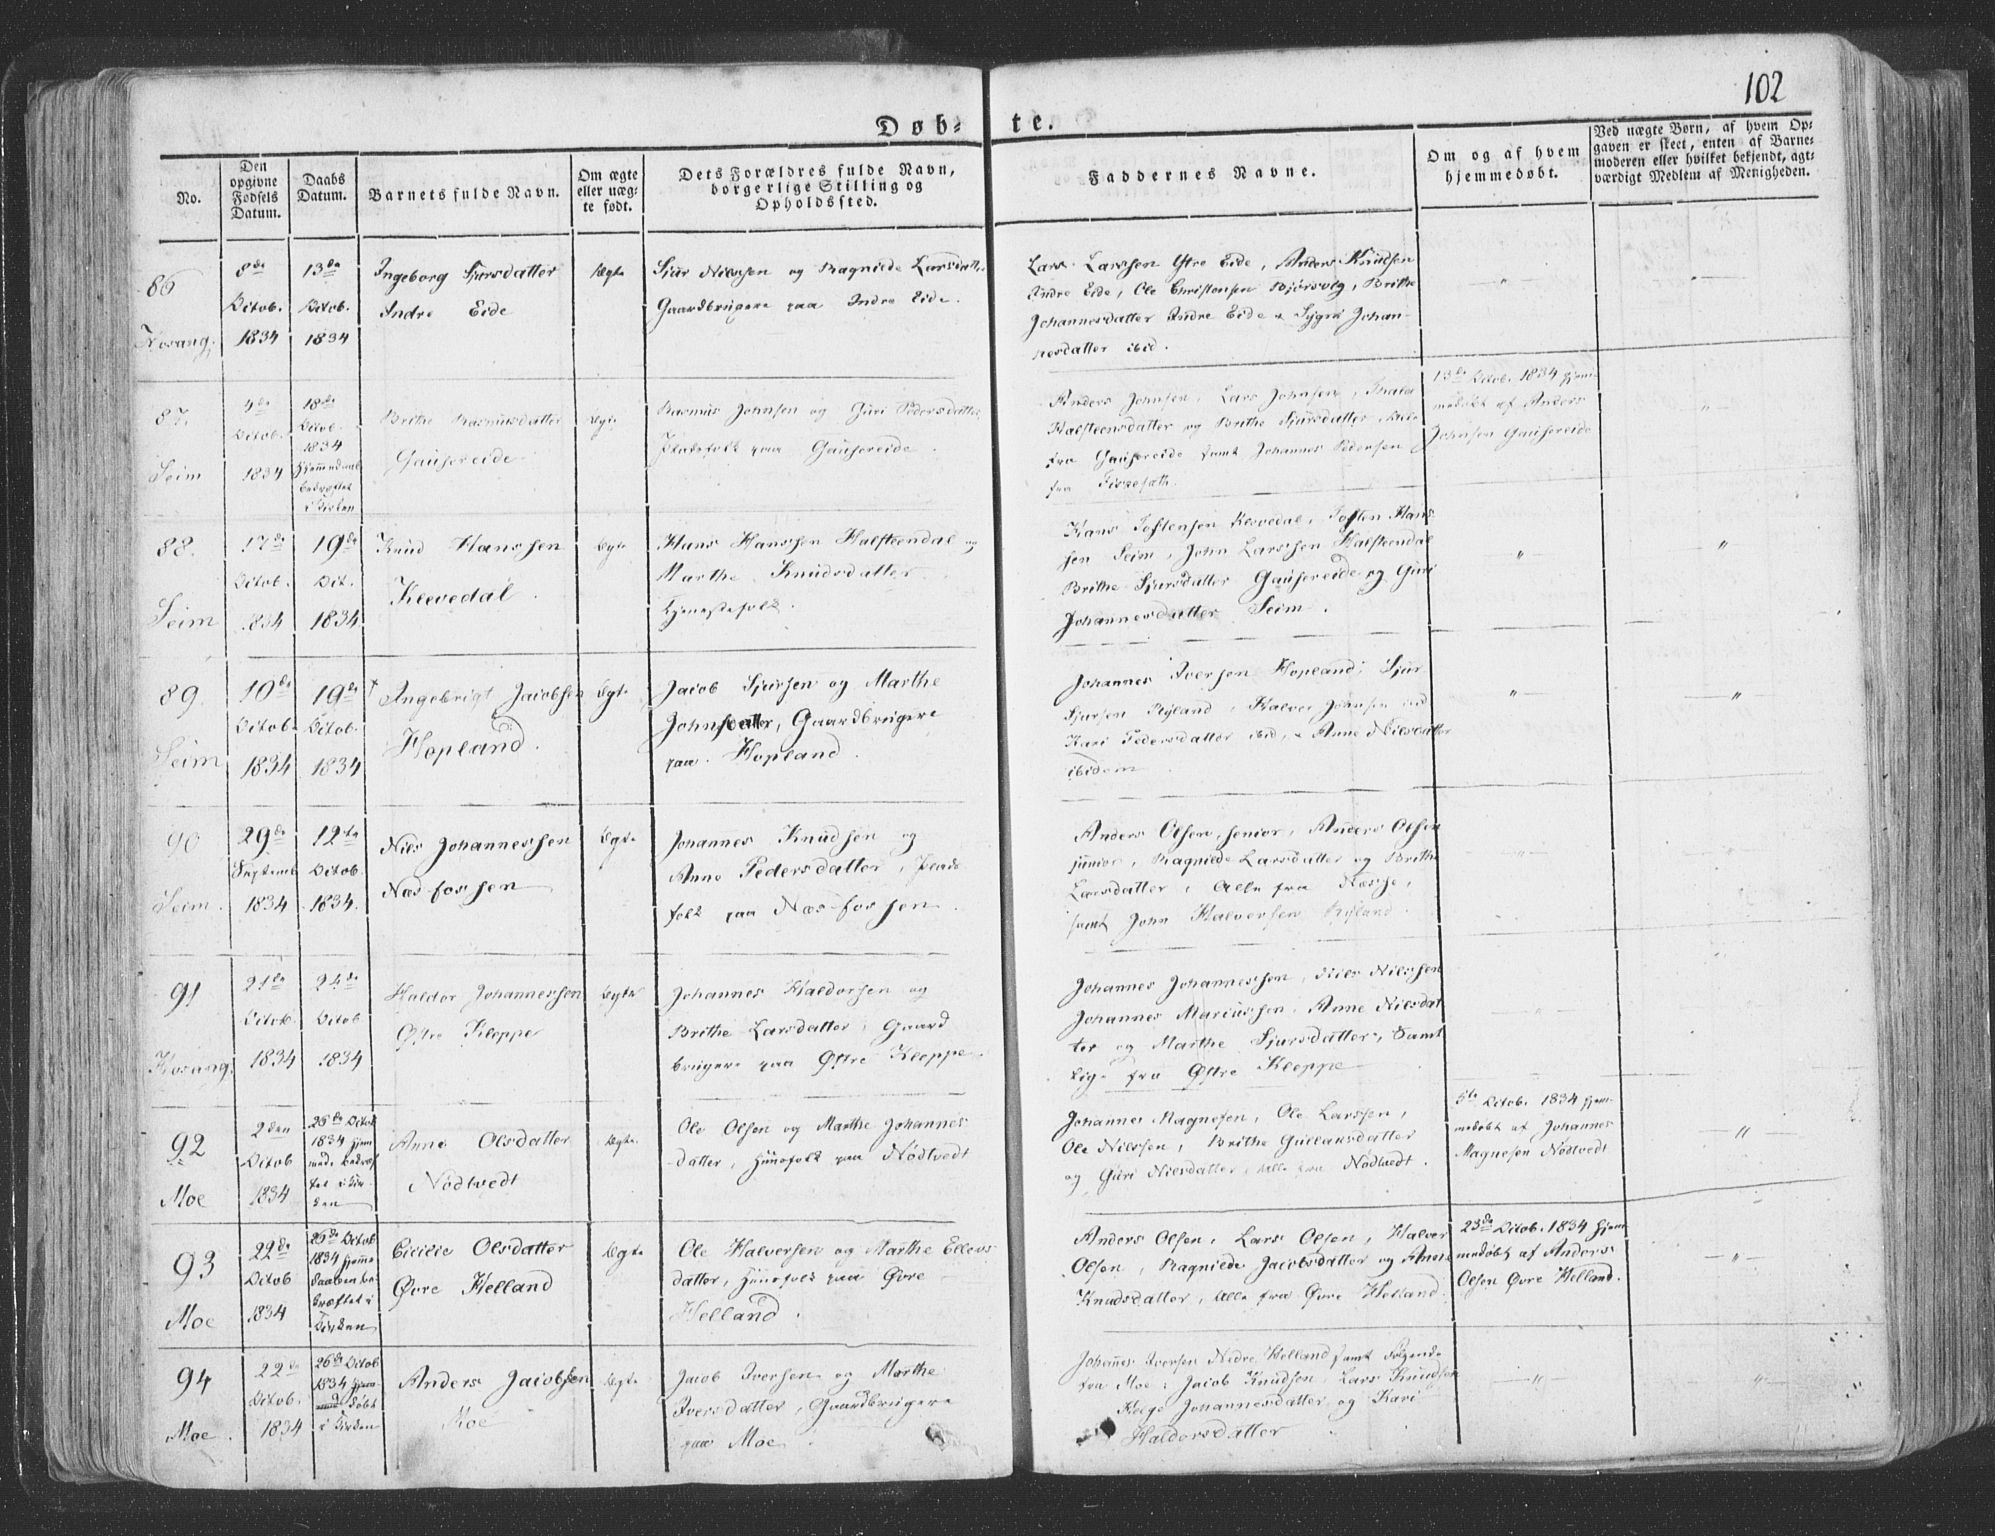 102
Døb- te.
No.
Den opgivne Fødsels Datum.
Daabs Datum.
Barnets fulde Navn.
Om ægte eller uæg- te født.
Dets Forældres fulde Navn, borgerlige Stilling og Opholdssted.
Faddernes Navne.
Om og af hvem hjemmedøbt.
Ved uægte Børn, af hvem Op- gaven er skeet, enten af Barne- moderen eller hvilket bekjendt, agt- værdigt Medlem af Menigheden.
86
8de Octob. 1834
13de Octob. 1834
Ingeborg Sjursdatter
Indre Eide
Ægte
Sjur Nilssen og Ragnilde Larsdatter
Gaardbrugere paa Indre Eide.
Lars Larssen Ytre Eide, Anders Knudsen
Indre Eide, Ole Christensen Bjørsvig, Brithe
Johannesdatter Indre Eide & Sygni Johan-
nesdatter ibid.
87.
Seim
4de Octob. 1834
18de Octob. 1834
bekræftet
i Kirken
Brithe Rasmusdatter
Gausereide
Ægte
Rasmus Johnsen og Guri Pedersdatter,
Pladsfolk paa Gausereide.
Anders Johnsen, Lars Johnsen,
Halsteensdatter og Brithe Sjursdatter, Alle
fra Gausereide samt Johannes Pedersen
fra
13de Octob. 1834 hjem-
medøbt af Anders
Johnsen Gausereide
88.
Seim
17de Octob. 834
19de Oct. 1834
Knud Hanssen
Klevedal.
Ægte
Hans Hanssen Halsteendal og
Marthe Knudsdatter
Tjenestefolk.
Hans Tostensen Klevedal, Tosten Hans
sen Seim, John Larssen Halsteendal
Brithe Sjursdatter Gausereide og Guri
Johannesdatter Seim.
89.
Seim
10de Octob. 1834
19de Octob. 1834
Ingebrigt Jacobsen
Hopland.
Ægte
Jacob Sjursen og Marthe
Johnsdatter, Gaardbrugere
paa Hopland.
Johannes Iversen Hopland, Sjur
Sjursen Ryland, Halver Johnsen ibid
Kari Pedersdatter ibid, & Anne Nilsdatter
ibidem
90
Seim.
29de Septemb. 1834
12te Octob. 1834.
Nils Johannessen
Næsfossen
Ægte
Johannes Knudsen og
Anne Pedersdatter, Plads
folk paa Næsfossen.
Anders Olsen, senior, Anders Olsen
junior, Ragnilde Larsdatter og Brithe
Larsdatter, Alle fra Næsse,
samt John Halversen Ryland.
91
21de Octob. 1834
24de Octob 1834
Haldor Johannessen
Østre Kleppe
Ægte
Johannes Haldorsen og
Brithe Larsdatter, Gaard
brugere paa Østre Kleppe.
Johannes Johannessen, Nils Nilssen
Johannes Mariussen, Anne Nilsdat
ter og Marthe Sjursdatter, Samt
lige fra Østre Kleppe
92
Moe
2den Octob 1834
26de Octob
1834 hjem
Anne Olsdatter
Nødtvedt
Ægte.
Ole Olsen og Marthe Johannes
datter, Huusfolk paa Nødtvedt
Johannes Magnesen, Ole Larssen,
Ole Nilssen, Brithe Gullausdatter
og Guri Nilsdatter, alle fra Nødtvedt.
5te Octob. 1834 hjem-
medøbt af Johannes
Magnesen Nødtvedt
93
Moe
22de Octob 1834
26de Octob
1834 hjemme
daaben be
kræftet i
Kirken
Cicilie Olsdatter
Øvre Helland
Ægte
Ole Halversen og Marthe Ellevs
datter, Huusfolk paa Øvre
Helland.
Anders Olsen, Lars Olsen, Halver
Olsen, Ragnilde Jacobsdatter og Anne
Knudsdatter, Alle fra Øvre Helland.
23de Octob. 1834 hjem
medøbt af Anders
Olsen Øvre Helland.
94
Moe.
22de Octob. 1834
26de Octob
1834
døbt
i Kirken
Anders Jacobsen
Moe
Ægte
Jacob Iversen og Marthe
Iversdatter, Gaardbrugere
paa Moe.
Johannes Iversen Nedre Helland samt Følgende
fra Moe: Jacob Knudsen, Lars Knudsen
Johannesdatter og Kari
Haldorsdatter